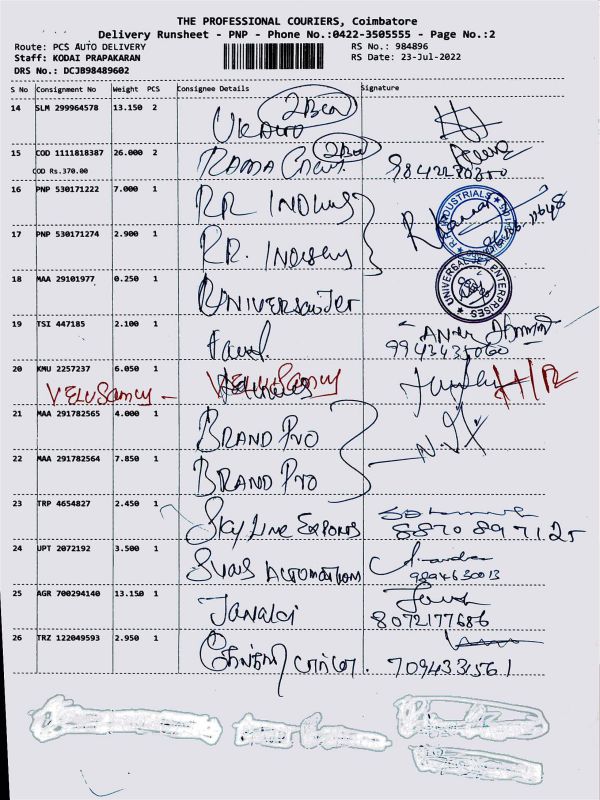 THE PROFESSIONAL COURIERS, Coimbatore
Delivery Runsheet - PNP - Phone No.:0422-3505555 - Page No.:2
Route: PCS AUTO DELIVERY
Staff: KODAI PRAPAKARAN
DRS No.: DCJB98489602
RS No.: 984896
RS Date: 23-Jul-2022
S No Consignment No Weight PCS Consignee Details Signature
14 SLM 299964578 13.150 2
2 Box
15 COD 1111818387 26.000 2 RAMA
COD Rs.370.00
2 Box
9842230350
16 PNP 530171222 7.000 1 RR INDUS
17 PNP 530171274 2.900 1 RR. Indus
INDUSTRIALS
18 MAA 29101977 0.250 1 UNIVERSAL JET
UNIVERSAL JET ENTERPRISES
19 TSI 447185 2.100 1
9943435060
20 KMU 2257237 6.050 1
VELUSamy - VELUSamy
21 MAA 291782565 4.000 1 BRAND PRO
22 MAA 291782564 7.850 1 BRAND PRO
23 TRP 4654827 2.450 1 SKY Line EXPORTS
8870897125
24 UPT 2072192 3.500 1 AUTOMATION
9894630013
25 AGR 700294140 13.150 1 JANAKI
8072177686
26 TRZ 122049593 2.950 1
7094331561